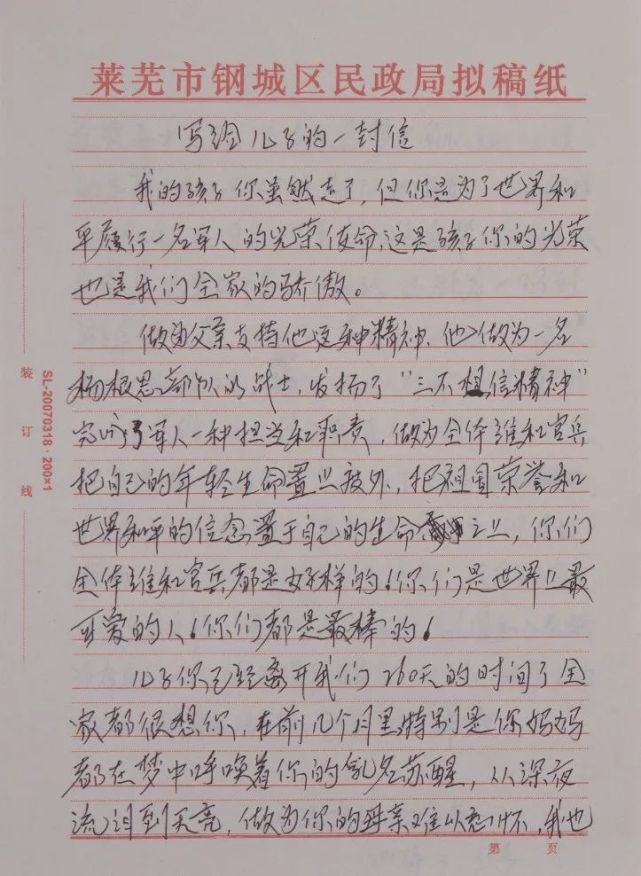 莱芜市钢城区民政局拟稿纸
写给儿子的一封信
我的孩子你虽然走了，但你是为了世界和
平履行一名军人的光荣使命，这是孩子你的光荣
也是我们全家的骄傲。
做为父亲支持他这种精神，他做为一名
杨根思部队的战士，发扬了“三不相信精神”
军人一种担当和职责，做为全体维和官兵
把自己的年轻生命置之度外，把祖国荣誉和
世界和平的信念置于自己的生命之上，你们
全体维和官兵都是好样的！你们是世界上最
可爱的人！你们都是最棒的！
儿子你已经离开我们260天的时间了全
家都很想你，在前几个月里特别是你妈妈
都在梦中呼唤着你的乳名苏醒，从深夜
流泪到天亮，做为你的母亲难以忘怀，我也
装
订
线
SL-20070318·200×1
第 页